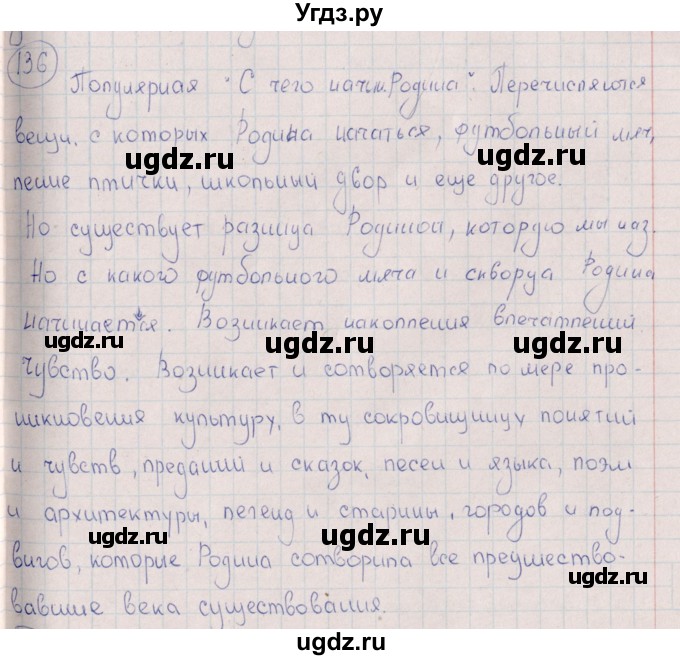 Угдз.ру
136
Популярная "С чего начин. Родина". Перечисляются
вещи, с которых Родина начаться, футбольный мяч,
ugdz.ru ugdz.ru
пение птички, школьный двор и еще другое.
Но существует разница Родиной, которую мы наз.
Но с какого футбольного мяча и скворца Родина
начинается. Возникает накопления впечатлений
ugdz.ru ugdz.ru ugdz.ru
чувство. Возникает и сотворяется по мере про-
никновения культуру, в ту сокровищницу понятий
и чувств, преданий и сказок, песен и языка, поэм
и архитектуры, легенд и старины, городов и под-
ugdz.ru ugdz.ru
вигов, которые Родина сотворила все предшество-
ugdz.ru
вавшие века существования.
ugdz.ru